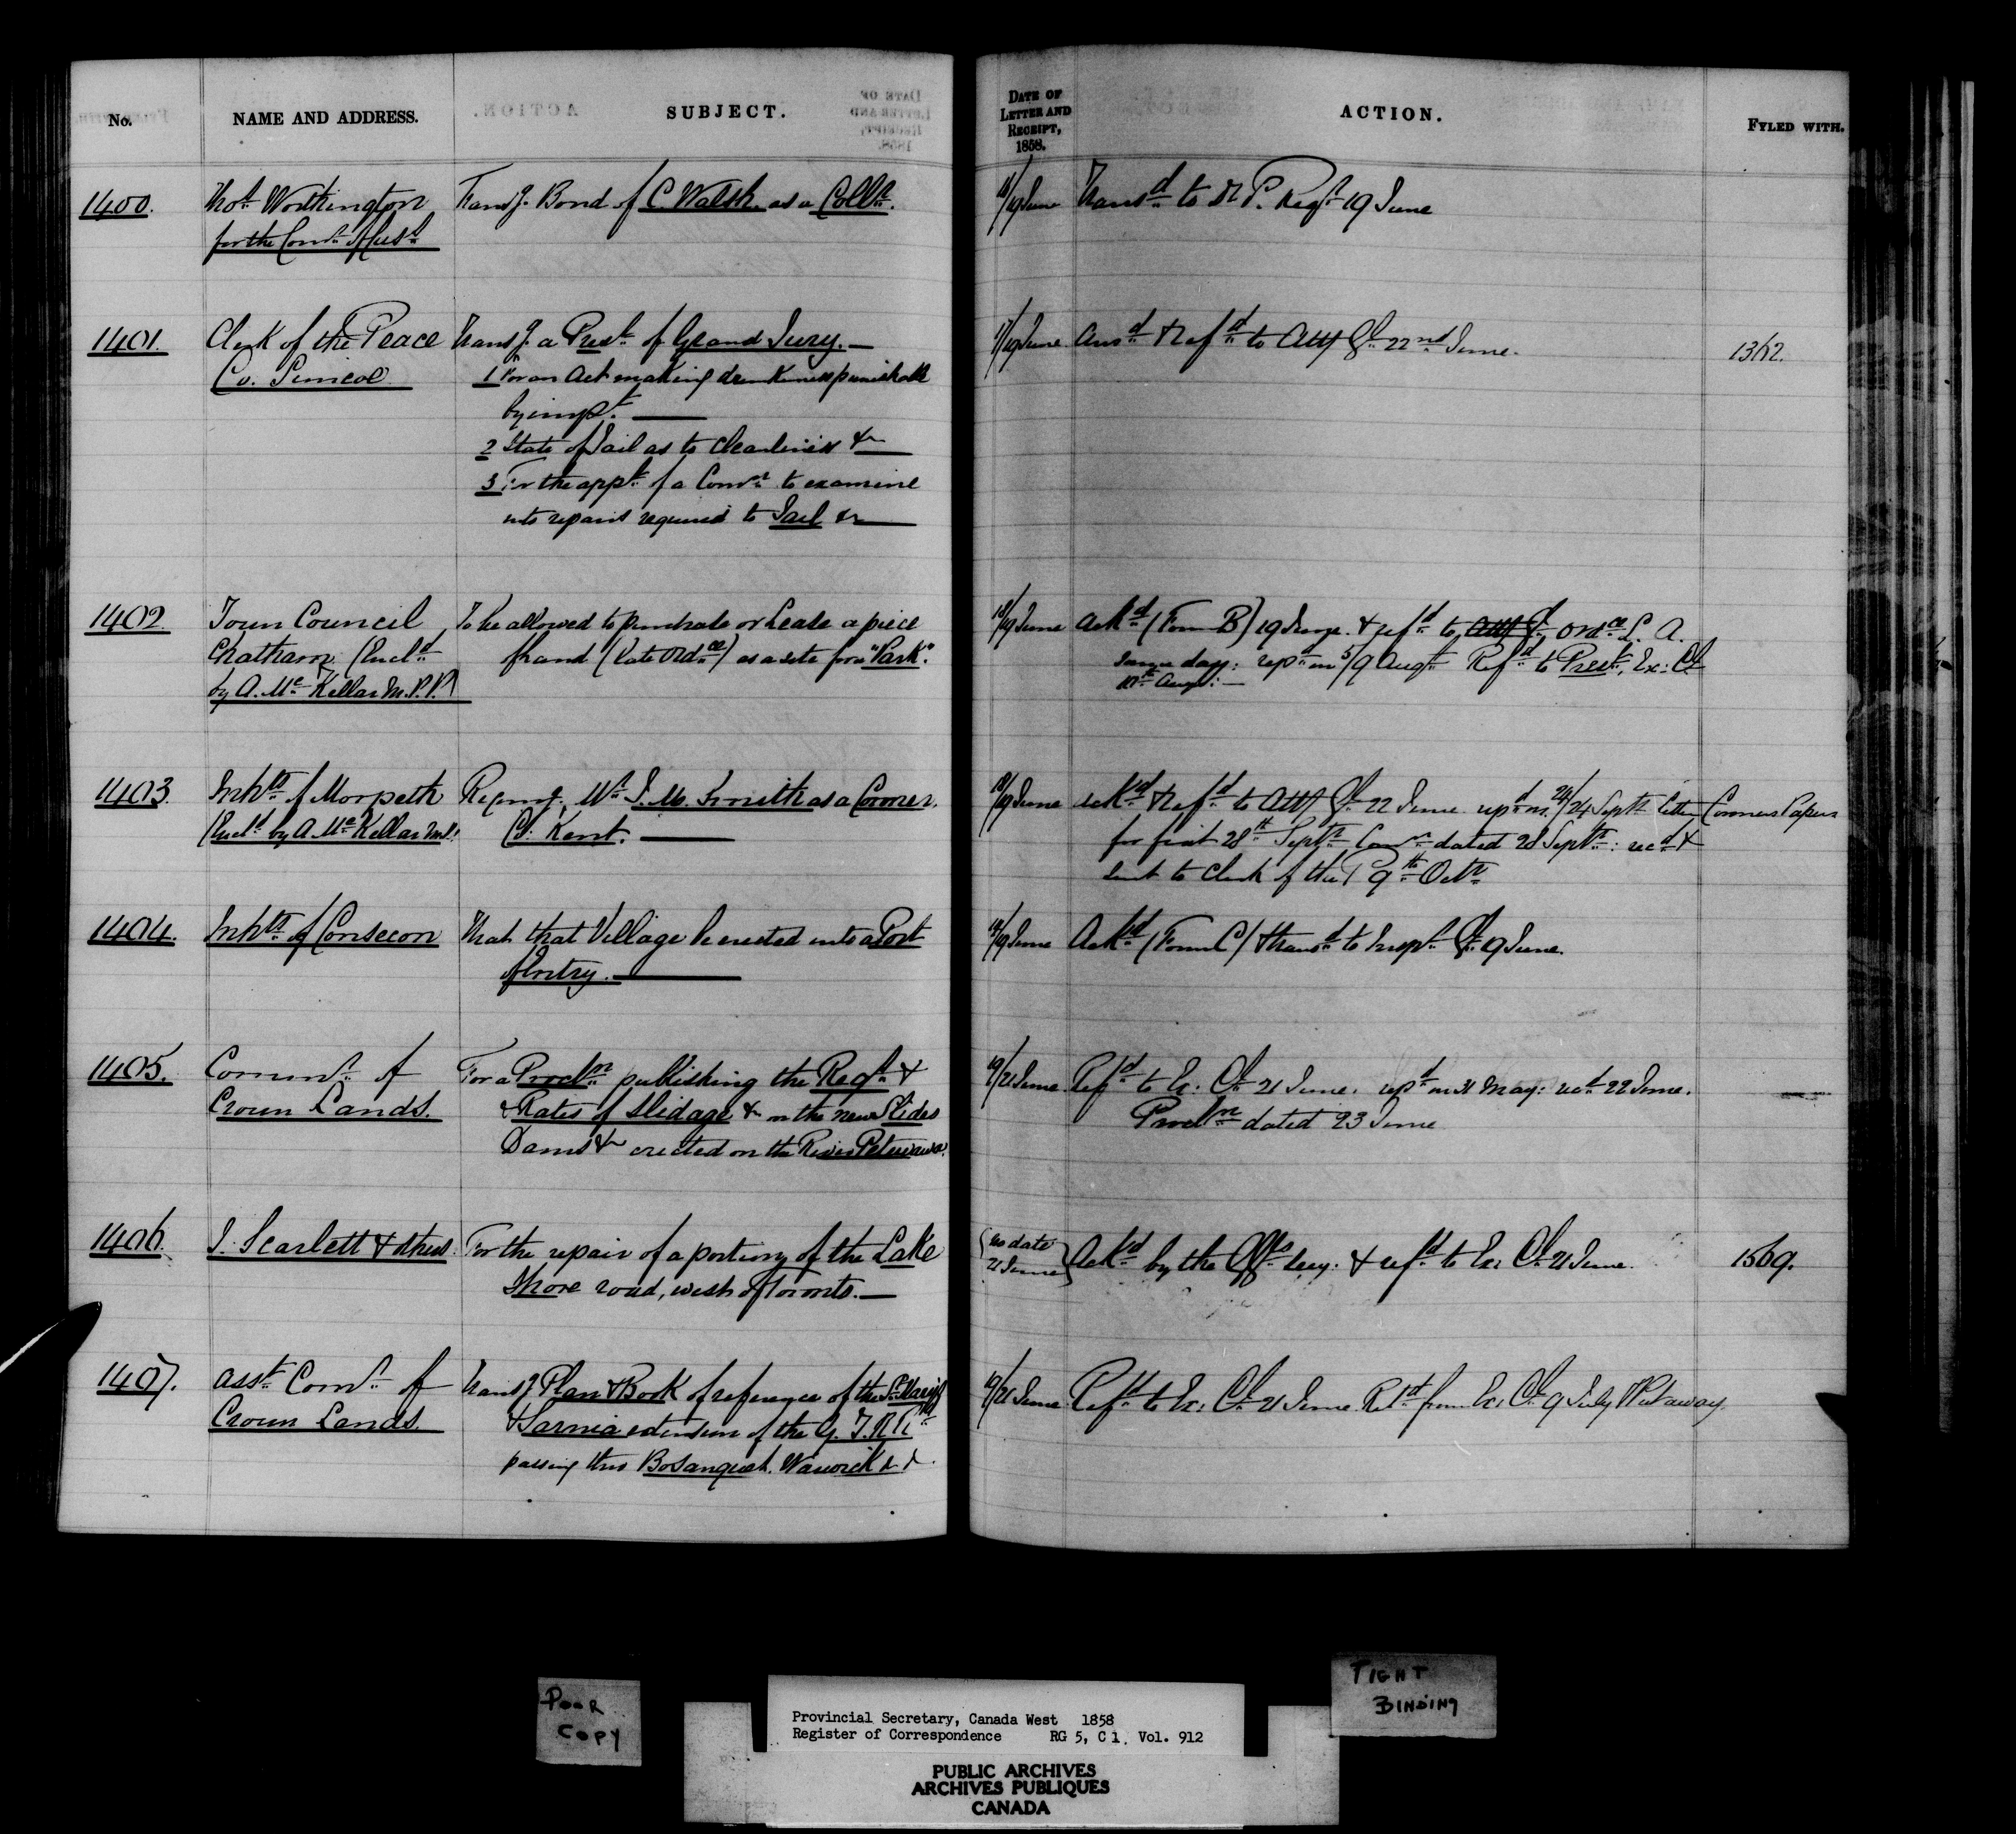 No.
NAME AND ADDRESS.
SUBJECT.
DATE OF
LETTER AND
RECEIPT,
1858.
ACTION.
FYLED WITH.
1400.
Thos. Worthington
for the Comr. of Cust.
Transg. Bond of C. Walsh as a Collr.
18/19 June
Transd. to R. P. Regr. 19 June
1401.
Clerk of the Peace
Co. Simcoe
Transg. a Prest. of Grand Jury.—
1 For an Act making drunkenness punishable
by impt. —
2 State of Jail as to cleanliness &c —
3 For the appt. of a Comn. to examine
into repairs required to Jail &c —
17/19 June
Ansd. & Refd. to Atty Gl. 22nd June.
1362.
1402
Town Council
Chatham (Encld.
by A. McKellar M.P.P.)
To be allowed to purchase or Lease a piece
of land (late Ordce.) as a site for a "Park".
18/19 June
Ackd. (Form B) 19 June. & refd. to Atty Gl. Ordce. L. A.
same day: repd. on 5/9 Augt. Refd. to Prest. Ex: Cl.
10th Augt: —
1403.
Inhts. of Morpeth
(Encld. by A. McKellar M.P.P.
Recomg. Mr. J. M. Smith as a Coroner.
Co: Kent. —
18/19 June
Ackd. & Refd. to Atty Gl. 22 June repd. on 24/24 Septr. Coroners Papers
for fiat 28th Septr. Comn. dated 28 Septr.: recd. &
sent to Clerk of the P 9th Octr.
1404.
Inhts. of Consecon
That that Village be erected into a Port
of Entry. —
18/19 June
Ackd. (Form C) & transd. to Inspr. Gl. 19 June.
1405.
Commr. of
Crown Lands.
For a Procln. publishing the Regt. &
& Rates of Slidage &c on the new Slides
Dams &c erected on the River Petewawa.
19/21 June
Refd. to Ex: Cl. 21 June. repd. on 31 May: recd. 22 June.
Procln. dated 23 June
1406.
J. Scarlett & others.
For the repair of a portion of the Lake
Shore road, west of Toronto. —
(no date
21 June)
Ackd. by the Asst. Secy. & refd. to Ex: Cl. 21 June.
1569.
1407.
Asst. Comr. of
Crown Lands.
Transg. Plan & Book of reference of the St. Marys
& Sarnia extension of the G. T. R Rd.
passing thro Bosanquet. Warwick & &.
19/21 June
Refd. to Ex: Cl. 21 June Retd. from Ex: Cl. 9 July & Put away.
POOR
COPY
TIGHT
BINDING
Provincial Secretary, Canada West 1858
Register of Correspondence RG 5, C 1. Vol. 912
PUBLIC ARCHIVES
ARCHIVES PUBLIQUES
CANADA